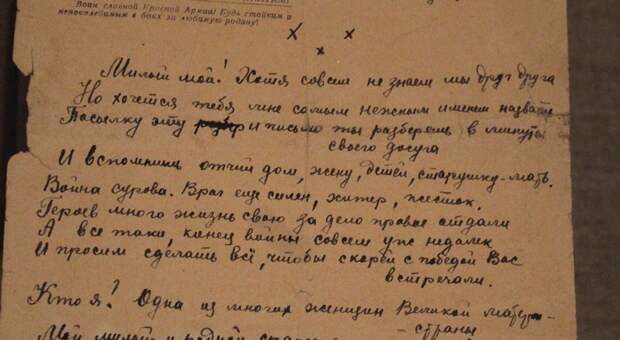 Воин славной Красной Армии! Будь стойким и
непоколебимым в боях за любимую родину!
х х
х
Милый мой! Хотя совсем не знаем мы друг друга
Но хочется тебя мне самым нежным именем назвать
Посылку эту и письмо ты разберешь в минуты
своего досуга
И вспомнишь отчий дом, жену, детей, старушку-мать.
Война сурова. Враг еще силен, хитер, жесток.
Героев много жизнь свою за дело правое отдали
А все таки, конец войны совсем уже недалек
И просим сделать всё, чтобы скорей с победой Вас
встречали.
Кто я? Одна из многих женщин Великой матери-
-страны
Мой милый и родной